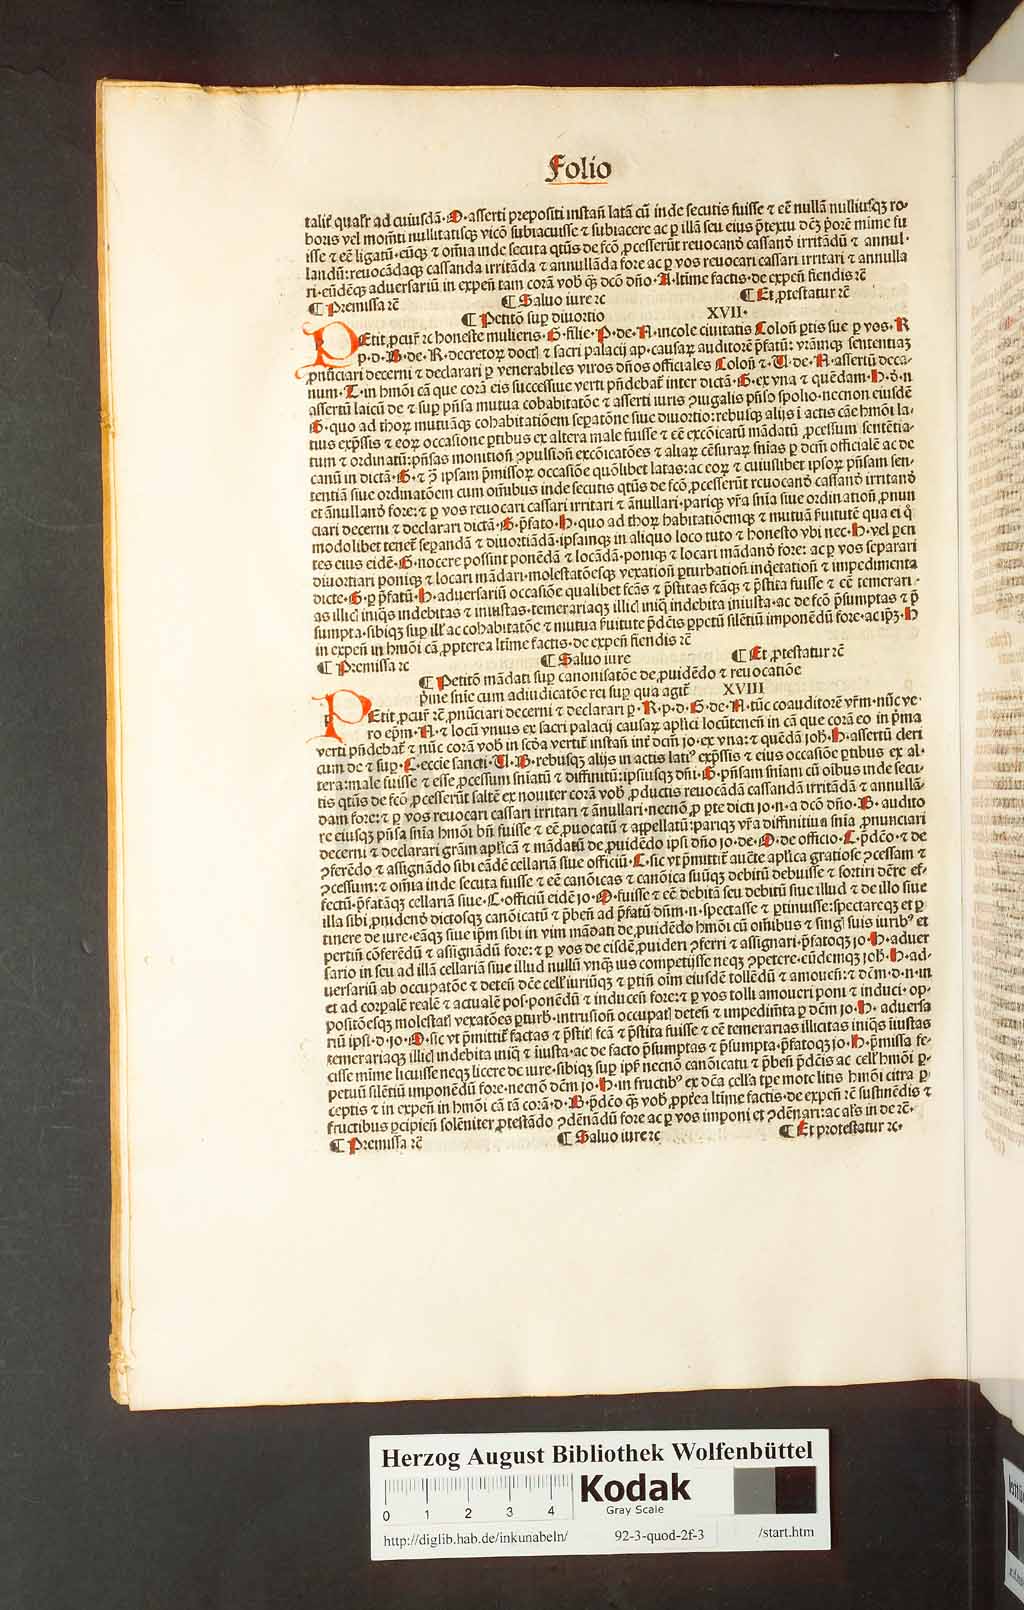 Folio
talit̃ qualit̃ ad cuiusdã·O·asserti prepositi instañ latã cũ inde secutis fuisse ⁊ eẽ nullã nulliusqꝫ ro-
boris vel momẽti nullitatisqꝫ vicõ subiacuisse ⁊ subiacere ac ꝑ illã seu eius p̃textu dcꝫ p̃orẽ mĩme fu
isse ⁊ eẽ ligatũ·eũqꝫ ⁊ om̃ia inde secuta qtũs de fcõ ꝓcesserũt reuocanð cassanð irritãdũ ⁊ annul-
landũ:reuocãdaqꝫ cassanda irritãda ⁊ annullãda fore ac ꝑ vos reuocari cassari irritari ⁊ annulla
ri·eũdẽqꝫ aduersariũ in expeñ tam corã vob̃ qꝫ dcõ dño·A·ltĩme factis·de expeñ fiendis rẽ
¶ Premissa rẽ ¶ Saluo iure ⁊c ¶ Et ꝓtestatur rẽ
¶ Petitõ sup diuortio XVII·
PEtit ꝓcur̃ ⁊c honeste mulieris·G·filie·P·de·A·incole ciuitatis Coloñ ꝑtis sue ꝑ vos·R
p·d·B·de·R·decretoꝝ doctꝭ ⁊ sacri palacij ap·causaꝝ auditorẽ p̃fatũ: vrãmqꝫ sententiaꝫ
ꝓnũciari decerni ⁊ declarari ꝑ venerabiles viros dños officiales Coloñ ⁊·U·de·A·assertũ deca-
num·T·in hmõi cã que corã eis successiue verti pñdebat̃ inter dictã·G·ex vna ⁊ quẽdam·H·ð·n
assertũ laicũ de ⁊ sup pñsa mutua cohabitatõe ⁊ asserti iuris ꝯiugalis pñso spolio·necnon eiusdẽ
G·quo ad thoꝝ mutuãqꝫ cohabitatiõem sepatõne siue diuortio:rebusqꝫ alijs ĩ actis cãe hmõi la-
tius exp̃ssis ⁊ eoꝝ occasione ꝑtibus ex altera male fuisse ⁊ eẽ excõicatũ mãdatũ ꝓcessum sentẽtia-
tum ⁊ ordinatũ:pñsas monitioñ ꝯpulsioñ excõicatões ⁊ aliaꝝ cẽsuraꝝ snias ꝑ dcm̃ officialẽ ac de
canũ in dictã·G·⁊ ꝯ̃ ipsam p̃missoꝝ occasiõe quõlibet latas:ac eoꝝ ⁊ cuiuslibet ipsoꝝ pñsam sen-
tentiã siue ordinatõem cum om̃ibus inde secutis qtũs de fcõ ꝓcesserũt reuocanð cassanð irritanð
et ãnullanð fore:⁊ ꝑ vos reuocari cassari irritari ⁊ ãnullari·pariqꝫ vr̃a snia siue ordinatioñ ꝓnun
ciari decerni ⁊ declarari dictã·G·p̃fato·H·quo ad thoꝝ habitatiõemqꝫ ⁊ mutuã ſuitutẽ qua ei q̃
modolibet tenet̃ sepandã ⁊ diuortiãdã·ipsamqꝫ in aliquo loco tuto ⁊ honesto vbi nec·H·vel ꝑen
tes eius eidẽ·G·nocere possint ponẽdã ⁊ locãdã·poniqꝫ ⁊ locari mãdanð fore: ac ꝑ vos separari
diuortiari poniqꝫ ⁊ locari mãdari·molestatõesqꝫ vexatioñ ꝑturbatioñ inq̃etatioñ ⁊ impedimenta
dicte·G·ꝑ p̃fatũ·H·aduersariũ occasiõe qualibet fcãs ⁊ p̃stitas fcãqꝫ ⁊ p̃stita fuisse ⁊ eẽ temerari-
as illicꝭ iniq̃s indebitas ⁊ iniustas·temerariaqꝫ illicꝭ iniq̃ indebita iniusta·ac de fcõ p̃sumptas ⁊ p̃
sumpta·sibiqꝫ sup ill' ac cohabitatõe ⁊ mutua ſuitute p̃deĩs ꝑpetũ silẽtiũ imponẽdũ fore·ac ip̃ꝫ·H
in expeñ in hmõi cã ꝓpterea ltĩme factis·de expeñ fiendis rẽ
¶ Premissa ⁊c ¶ Saluo iure ¶ Et ꝓtestatur rẽ
¶ Petitõ mãdati sup canonisatõe de ꝓuidẽdo ⁊ reuocatiõe
p̃ine snie cum adiudicatõe rei sup qua agit̃ XVIII
PEtit ꝓcur̃ rẽ ꝓnũciari decerni ⁊ declarari ꝑ·R·p·d·G·de·A·tũc coauditorẽ vr̃m·nũc ve-
ro ep̃m·A·⁊ locũ vnius ex sacri palacij causaꝝ aplici locũteneñ in cã que corã eo in p̃ma
verti pñdebat̃ ⁊ nũc corã vob̃ in scð̃a vertit̃ instañ int̃ dcm̃ jo·ex vna:⁊ quẽdã joh̃·H·assertũ cleri
cum de ⁊ sup·C·eccie sancti·U·B·rebusqꝫ alijs in actis latiꝰ exp̃ssis ⁊ eius occasiõe ꝑtibus ex al-
tera:male fuisse ⁊ esse ꝓcessum sniatũ ⁊ diffinitũ:ipsiusqꝫ dñi·G·pñsam sniam cũ oĩbus inde secu-
tis qtũs de fcõ ꝓcesserũt saltẽ ex nouiter corã vob̃ ꝓductis reuocãdã cassandã irritãdã ⁊ annullã-
dam fore:⁊ ꝑ vos reuocari cassari irritari ⁊ ãnullari·necnõ ꝓ ꝑte dicti jo·n·a dcõ dño·B· audito
re eiusqꝫ pñsa snia hmõi bñ fuisse ⁊ eẽ ꝓuocatũ ⁊ appellatũ:pariqꝫ vr̃a diffinitiua snia ꝓnunciari
decerni ⁊ declarari grãm aplicã ⁊ mãdatũ de ꝓuidẽdo ipsi dño jo·de·O·de officio·C·p̃dcõ·⁊ de
ꝯferẽdo ⁊ assignãdo sibi eãdẽ cellariã siue officiũ·C·sic vt p̃mittit̃ aucte aplica gratiose ꝯcessam ⁊
ꝯcessum:⁊ om̃ia inde secuta fuisse ⁊ eẽ canõicas ⁊ canõica suũqꝫ debitũ debuisse ⁊ sortiri dẽre ef-
fectũ·p̃fatãqꝫ cellariã siue·C·officiũ eidẽ jo·O·fuisse ⁊ eẽ debitã seu debitũ siue illud ⁊ de illo siue
illa sibi ꝓuidenð dictosqꝫ canõicatũ ⁊ p̃beñ ad p̃fatũ dñm·n·spectasse ⁊ ꝑtinuisse:spectareqꝫ et ꝑ
tinere de iure·eãqꝫ siue ip̃m sibi in vim mãdati de ꝓuidẽdo hmõi cũ om̃ibus ⁊ singlꝭ suis iuribꝰ et
pertiñ cõferẽdũ ⁊ assignãdũ fore:⁊ ꝑ vos de eisdẽ ꝓuideri ꝯferri ⁊ assignari·p̃fatoqꝫ jo·H·aduer
sario in seu ad illã cellariã siue illud nullũ vnqꝫ ius competijsse neqꝫ ꝯpetere·eũdemqꝫ joh̃·H·ad-
uersariũ ab occupatõe ⁊ deteñ dcẽ cell' iuriũqꝫ ⁊ ꝑtiñ oĩm eiusdẽ tollẽdũ ⁊ amoueñ:⁊ dcm̃·d·n·in
et ad corpalẽ realẽ ⁊ actualẽ pos·ponẽdũ ⁊ inducẽñ fore:⁊ ꝑ vos tolli amoueri poni ⁊ induci·op-
positõesqꝫ molestatꝭ vexatões ꝑturb̃·intrusioñ occupatꝭ deteñ ⁊ impedim̃ta ꝑ dcm̃ jo·H· aduersa
riũ ipsi·d·jo·O·sic vt p̃mittit̃ factas ⁊ p̃stitꝭ fcã ⁊ p̃stita fuisse ⁊ eẽ temerarias illicitas iniq̃s iiustas
temerariaqꝫ illicꝭ indebita iniq̃ ⁊ iiusta·ac de facto p̃sumptas ⁊ p̃sumpta·p̃fatoqꝫ jo·H·p̃missa fe-
cisse mĩme licuisse neqꝫ licere de iure·sibiqꝫ sup ip̃s̃ necnõ canõicatu ⁊ p̃beñ p̃deĩs ac cell' hmõi ꝑ-
petuũ silẽtiũ imponẽdũ fore·necnõ dcm̃ jo·H·in fructibꝰ ex dca cell'a tp̃e mote litis hmõi citra ꝑ
ceptis ⁊ in expeñ in hmõi cã tã corã·d·B·p̃dcõ qꝫ vob̃ ꝓpt̃ea ltĩme factis·de expeñ rẽ sustinẽdis ⁊
fructibus ꝑcipieñ solẽniter ꝓtestãdo ꝯdẽnãdũ fore ac ꝑ vos imponi et ꝯdẽnari:ac al's in de rẽ·
¶ Premissa rẽ ¶ Saluo iure ⁊c ¶ Et protestatur ⁊c·
Herzog August Bibliothek Wolfenbüttel
0 1 2 3 4
Kodak
Gray Scale
http://diglib.hab.de/inkunabeln/ 92-3-quod-2f-3 /start.htm